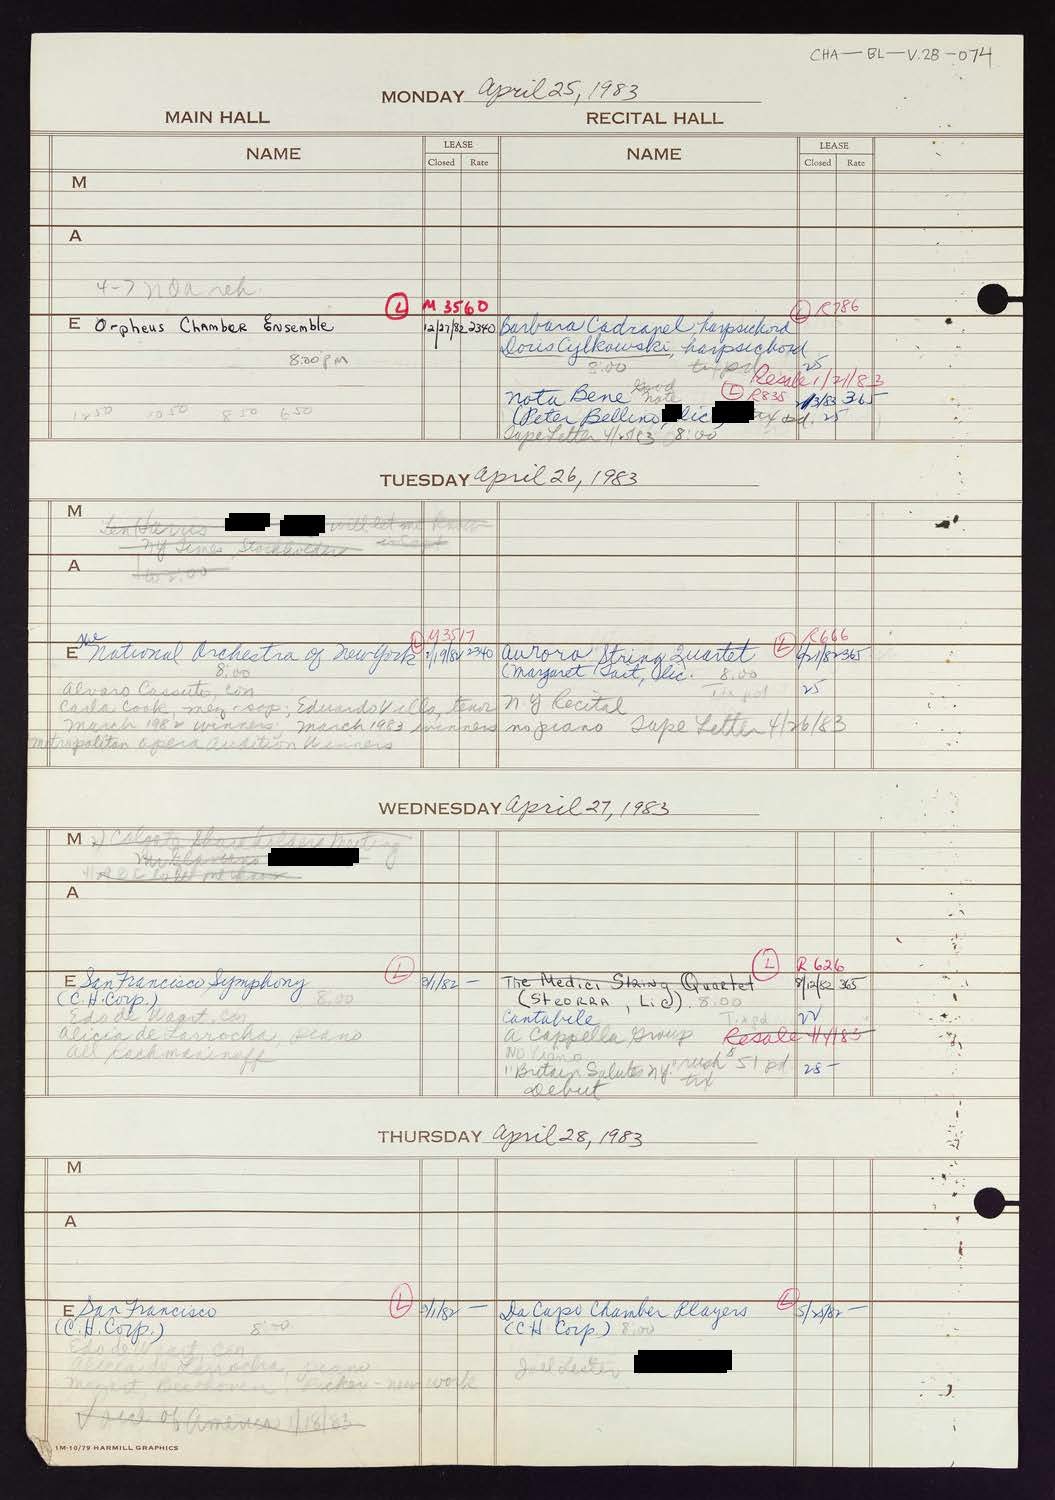 CHA-BL-V.28-074
MONDAY April 25, 1983
MAIN HALL RECITAL HALL
NAME LEASE Closed Rate NAME LEASE Closed Rate
M
A
4-7 NOA reh.
L M 3560 L R786
E Orpheus Chamber Ensemble 12/27/82 2340 Barbara Cadranel, harpsichord
Doris Cylkowski, harpsichord
8:00 PM 8:00 tix pd 25
Resale 1/21/83
Nota Bene Good note L R835 2/3/83 365
(Peter Bellino, lic, tix pd. 25
Tape Letter 4/25/83 8:00
1250 1050 850 650
TUESDAY April 26, 1983
M
Len Harris will let me know
NY Times Stockholders
to 2:00
A
L M3517 L R666
E The National Orchestra of New York 7/19/82 2340 Aurora String Quartet 9/21/82 365
8:00 (Margaret Tait, lic. 8:00
Tix pd 25
Alvaro Cassuto, con
Carla Cook, mez-sop; Eduardo Villa, tenor N.Y Recital
March 1982 winners; March 1983 winners no piano Tape Letter 4/26/83
Metropolitan Opera Audition Winners
WEDNESDAY April 27, 1983
M Colgate Shareholders Meeting
A
L L R 626
E San Francisco Symphony 3/1/82 — The Medici String Quartet 8/12/82 365
(C.H. Corp.) 8:00 (STEORRA, Lic) 8:00
Edo de Waart, con Cantabile Tix pd
Alicia de Larrocha, piano A Cappella Group Resale 4/4/83
All Rachmaninoff No Piano
"Britain Salutes NY" rush tix 51 pd 25 —
Debut
THURSDAY April 28, 1983
M
A
E San Francisco L 3/1/82 — Da Capo Chamber Players L 5/25/82 —
(C.H. Corp.) 8:00 (CH Corp.) 8:00
Edo de Waart, con
Alicia de Larrocha, piano Joel Lester
Mozart, Beethoven, Picker - new work
Voice of America 1/18/83
1M-10/79 HARMILL GRAPHICS